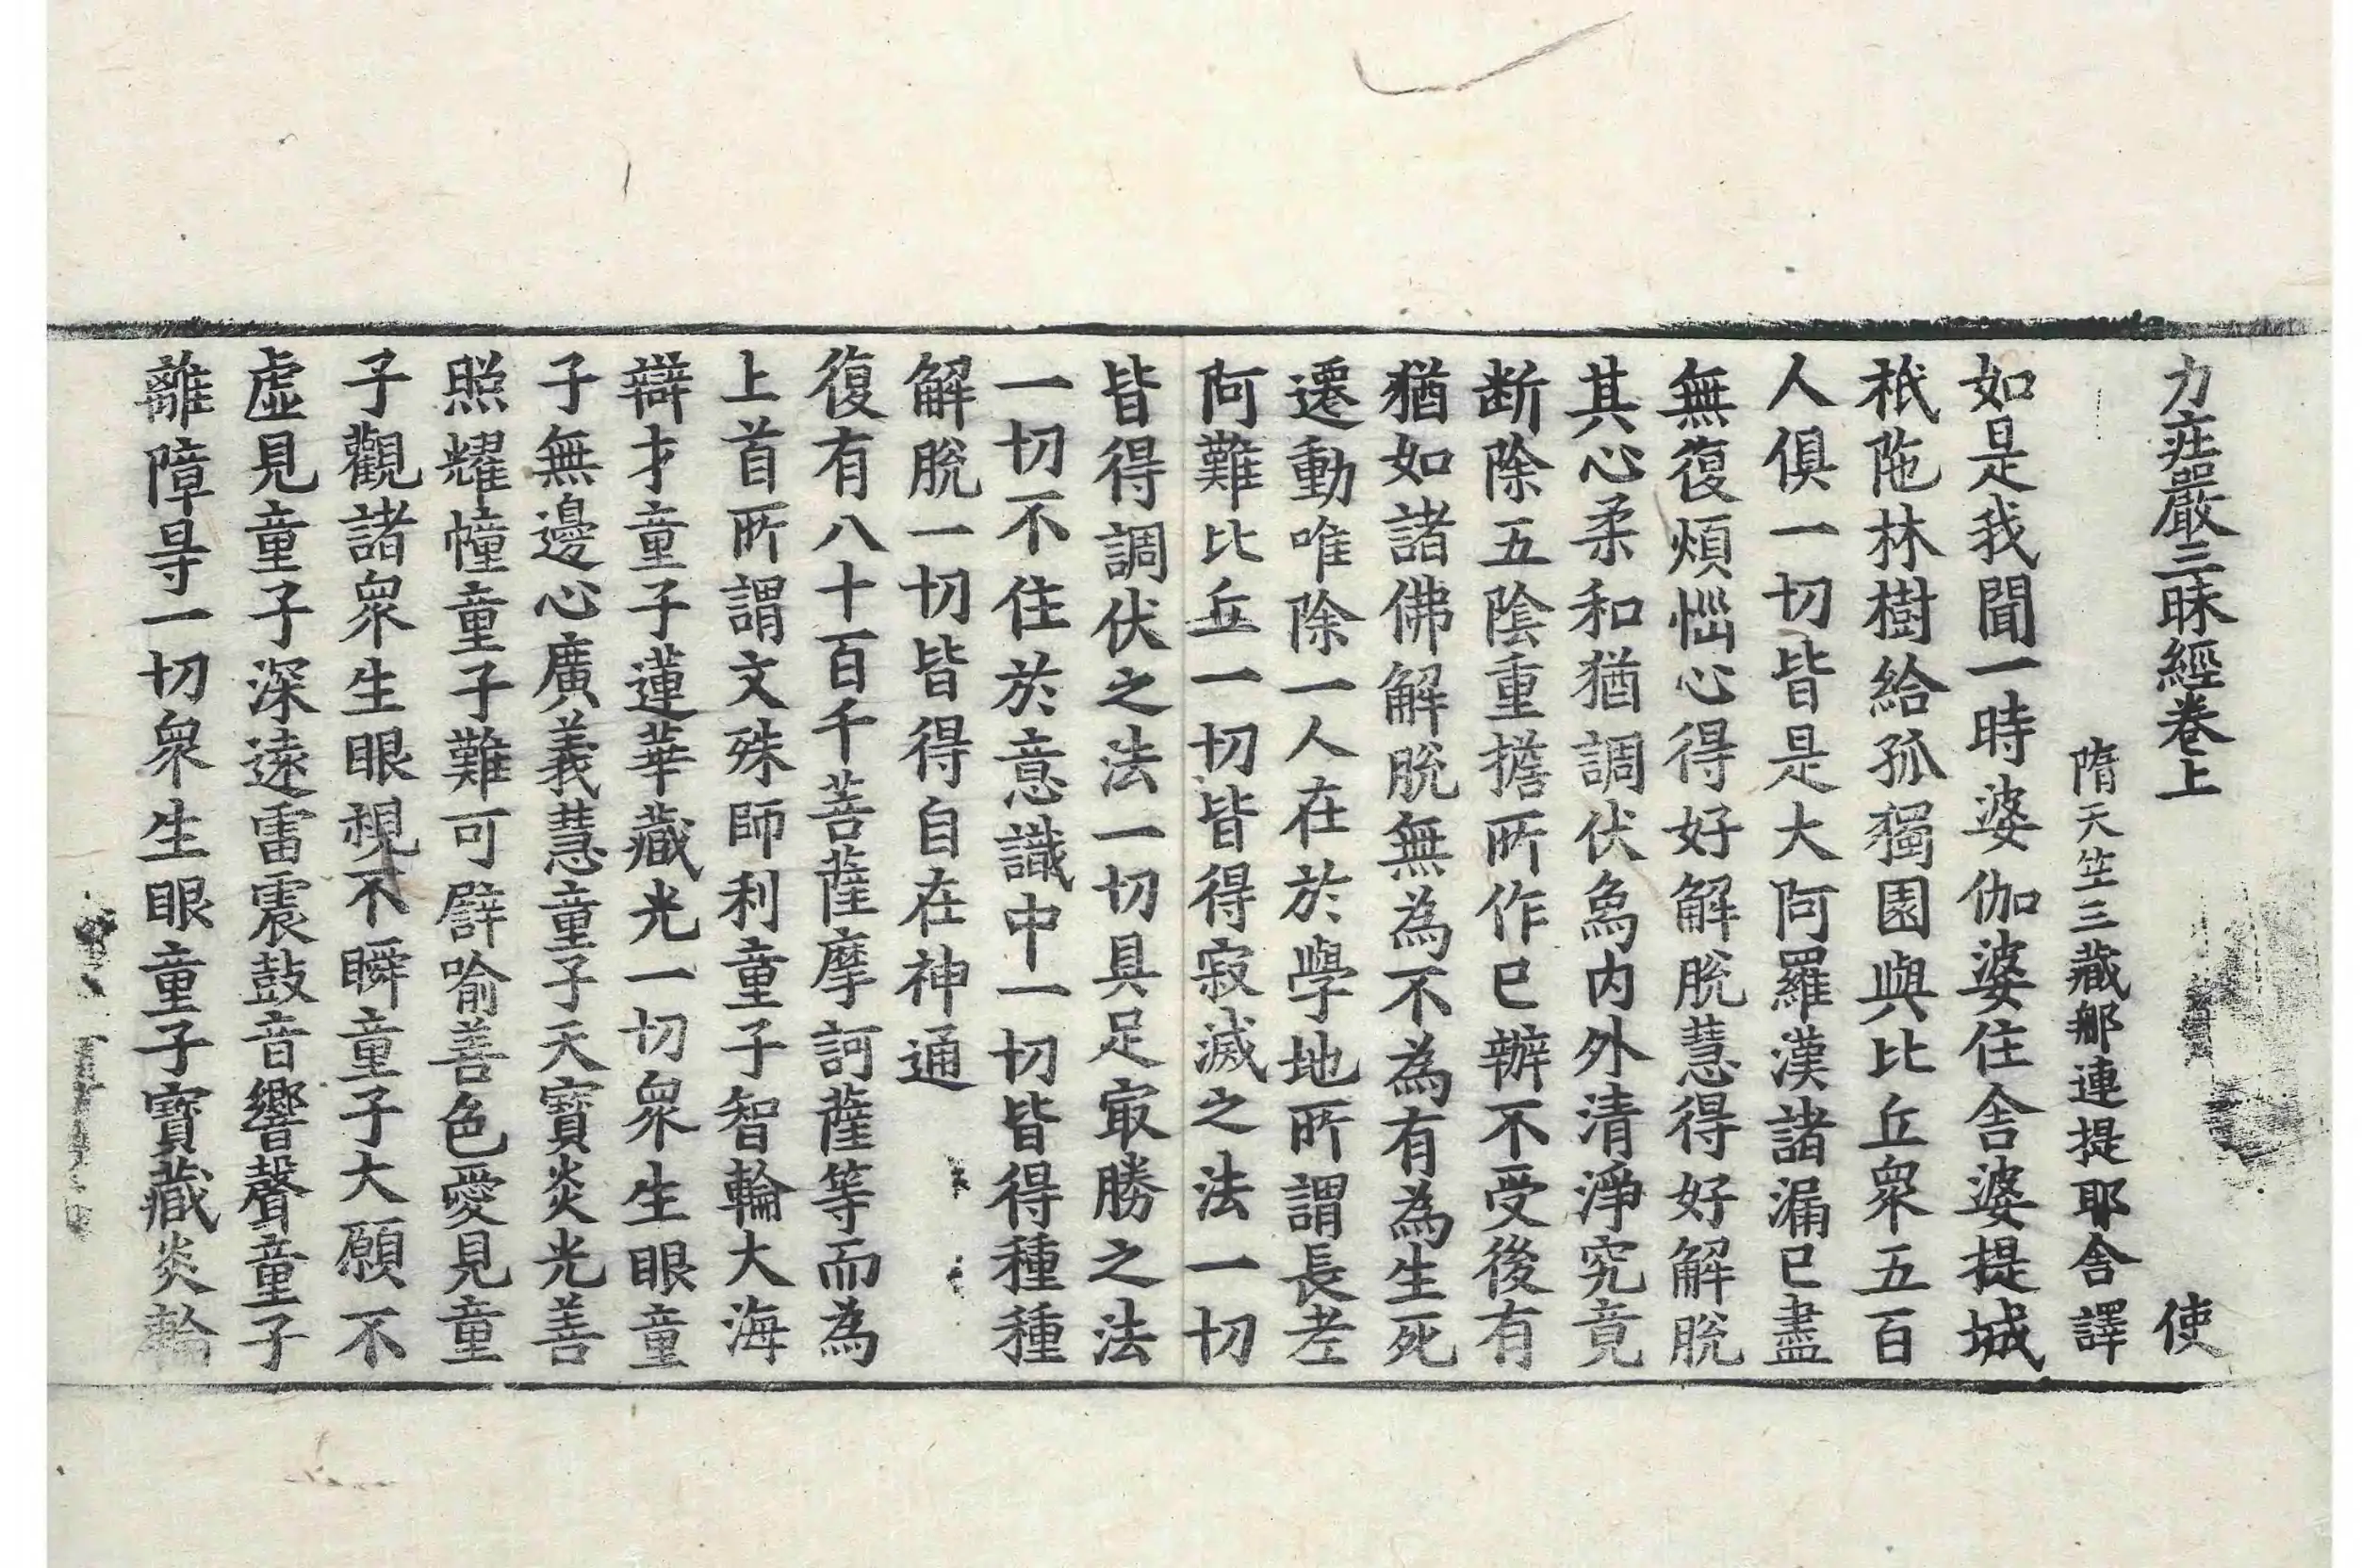 力莊嚴三昧經卷上 使
隋天竺三藏那連提耶舍譯
如是我聞一時婆伽婆住舍婆提城
祇陁林樹給孤獨園與比丘衆五百
人俱一切皆是大阿羅漢諸漏已盡
無復煩惱心得好解脫慧得好解脫
其心柔和猶調伏象内外清淨究竟
断除五陰重擔所作已辦不受後有
猶如諸佛解脫無為不為有為生死
遷動唯除一人在於學地所謂長老
阿難比丘一切皆得寂滅之法一切
皆得調伏之法一切具足㝡勝之法
一切不住於意識中一切皆得種種
解脫一切皆得自在神通
復有八十百千菩薩摩訶薩等而為
上首所謂文殊師利童子智輪大海
辯才童子蓮華藏光一切衆生眼童
子無邊心廣義慧童子天寶炎光善
照耀幢童子難可譬喻善色愛見童
子觀諸衆生眼視不瞬童子大願不
虛見童子深遠雷震鼓音響聲童子
離障㝵一切衆生眼童子寶藏炎輪